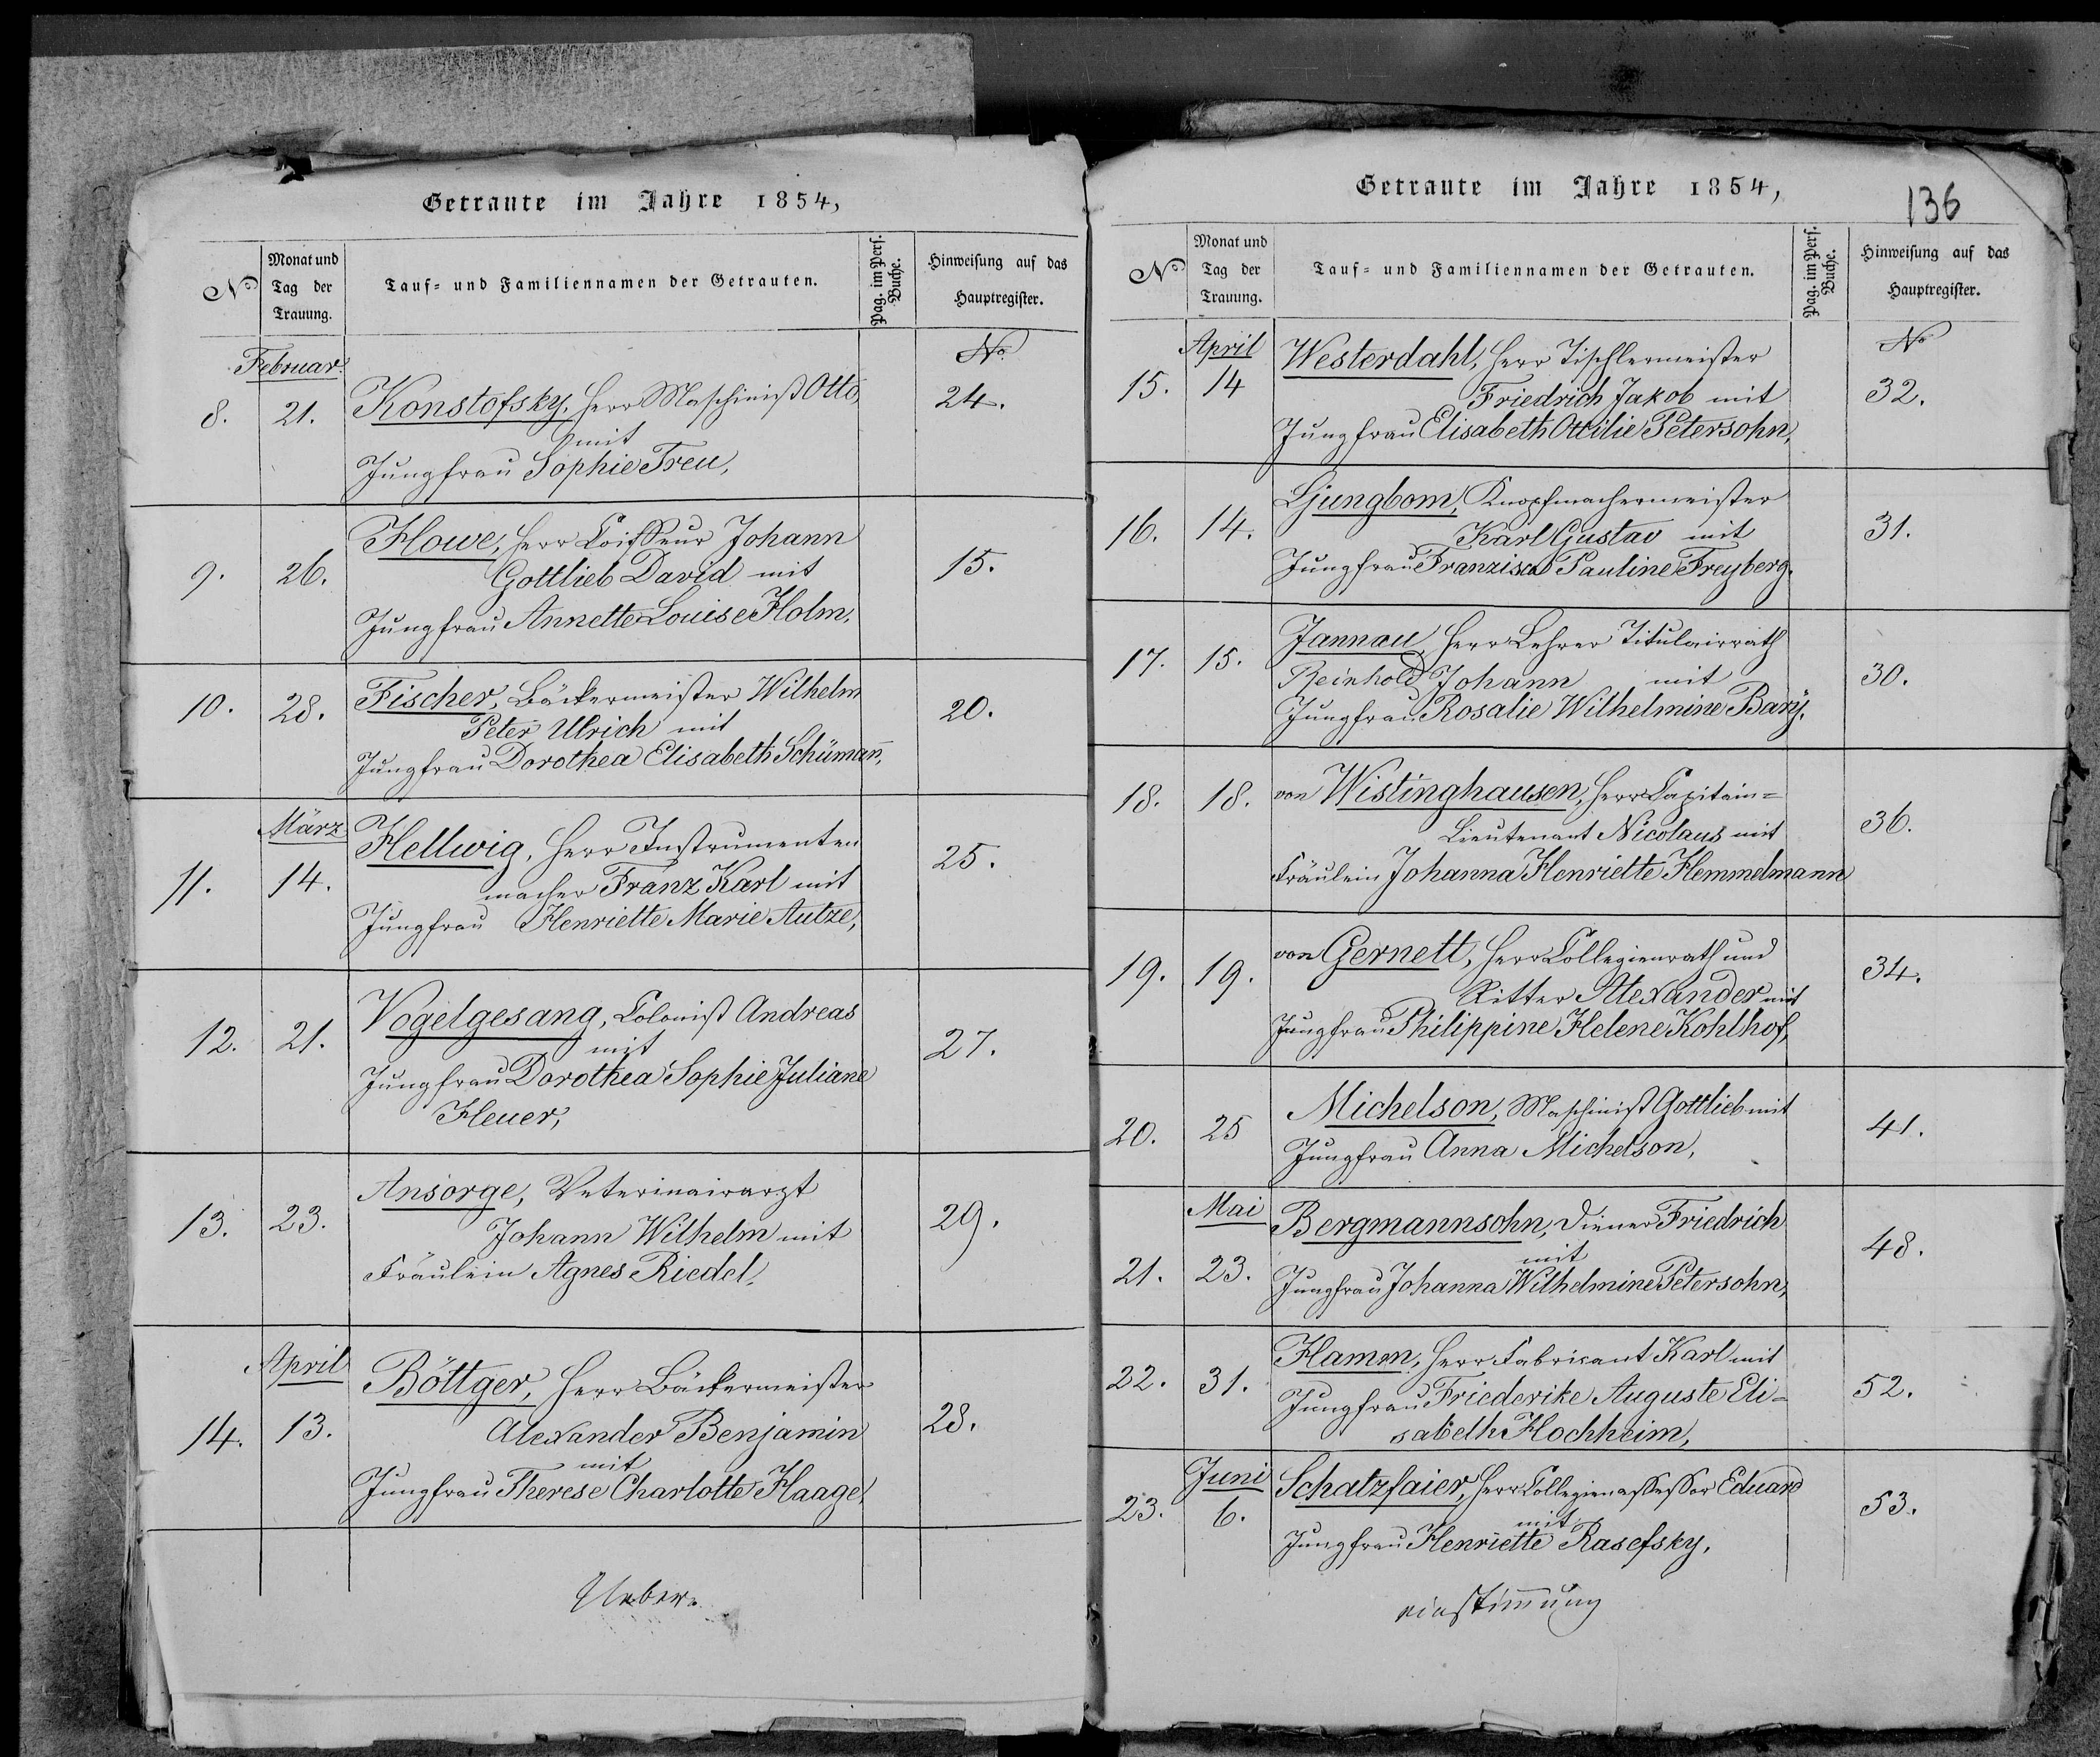 Getraute im Jahre 1854,
No
Monat und
Tag der
Trauung.
Tauf- und Familiennamen der Getrauten.
Pag. im Pers.
Buche.
Hinweisung auf das
Hauptregister.
Februar.
No
8. 21. Konstofsky, Herr Maschinist Otto, 24.
mit
Jungfrau Sophie Treu,
9. 26. Howe, Herr Coiffeur Johann 15.
Gottlieb David mit
Jungfrau Annette Louise Holm,
10. 28. Fischer, Bäckermeister Wilhelm 20.
Peter Ulrich mit
Jungfrau Dorothea Elisabeth Schümañ,
März
11. 14. Hellwig, Herr Instrumenten 25.
macher Franz Karl mit
Jungfrau Henriette Marie Autze,
12. 21. Vogelgesang, Colonist Andreas 27.
mit
Jungfrau Dorothea Sophie Juliane
Heuer,
13. 23. Ansorge, Veterinairarzt 29.
Johann Wilhelm mit
Fräulein Agnes Riedel,
April
14. 13. Böttger, Herr Bäckermeister 28.
Alexander Benjamin
mit
Jungfrau Therese Charlotte Haage,
Ueber-
Getraute im Jahre 1854,
136
No
Monat und
Tag der
Trauung.
Tauf- und Familiennamen der Getrauten.
Pag. im Pers.
Buche.
Hinweisung auf das
Hauptregister.
April
No
15. 14 Westerdahl, Herr Tischlermeister 32.
Friedrich Jakob mit
Jungfrau Elisabeth Ottilie Petersohn,
16. 14. Ljungbom, Knopfmachermeister 31.
Karl Gustav mit
Jungfrau Franzisca Pauline Freyberg.
17. 15. Jannau, Herr Lehrer Titulairrath 30.
Reinhold Johann mit
Jungfrau Rosalie Wilhelmine Barÿ,
18. 18. von Wistinghausen, Herr Capitain- 36.
Lieutenant Nicolaus mit
Fräulein Johanna Henriette Hemmelmann
19. 19. von Gernett, Herr Collegienrath und 34.
Ritter Alexander mit
Jungfrau Philippine Helene Kohlhof,
20. 25 Michelson, Maschinist Gottlieb mit 41.
Jungfrau Anna Michelson,
Mai
21. 23. Bergmannsohn, Diener Friedrich 48.
mit
Jungfrau Johanna Wilhelmine Petersohn,
22. 31. Hamm, Herr Fabricant Karl mit 52.
Jungfrau Friederike Auguste Eli-
sabeth Hochheim,
Juni
23. 6. Schatzfaier, Herr Collegienassessor Eduard 53.
mit
Jungfrau Henriette Rasefsky,
einstimmung